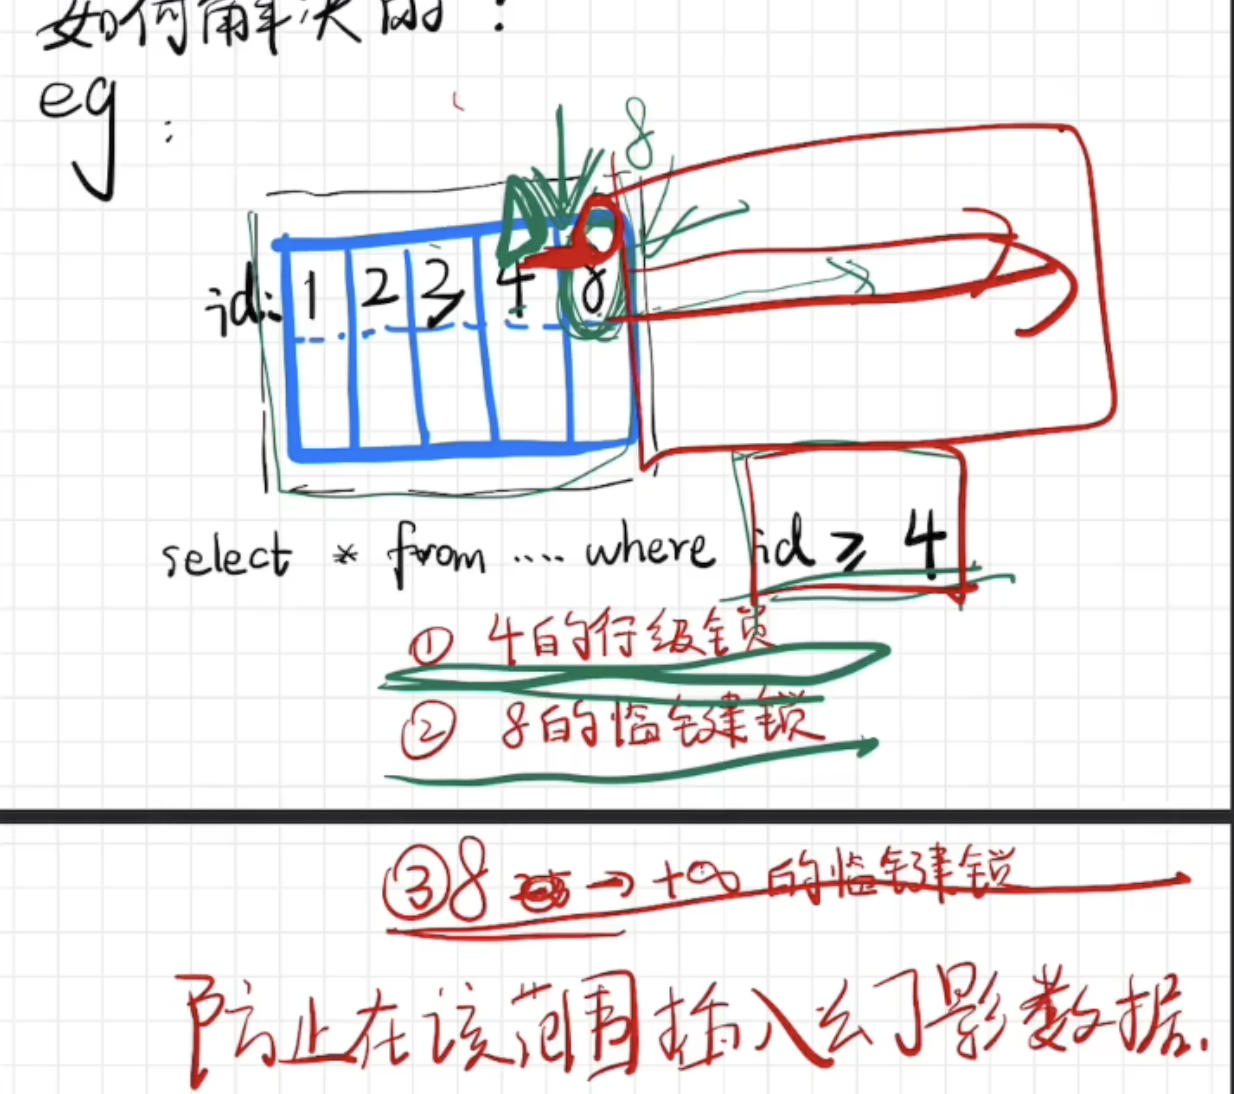 如何解决的？
eg：
8
id: 1 2 3 4 8
select * from .... where id ≥ 4
① 4的行级锁
② 8的临键锁
③ 8 → +∞ 的临键锁
防止在该范围插入幻影数据.